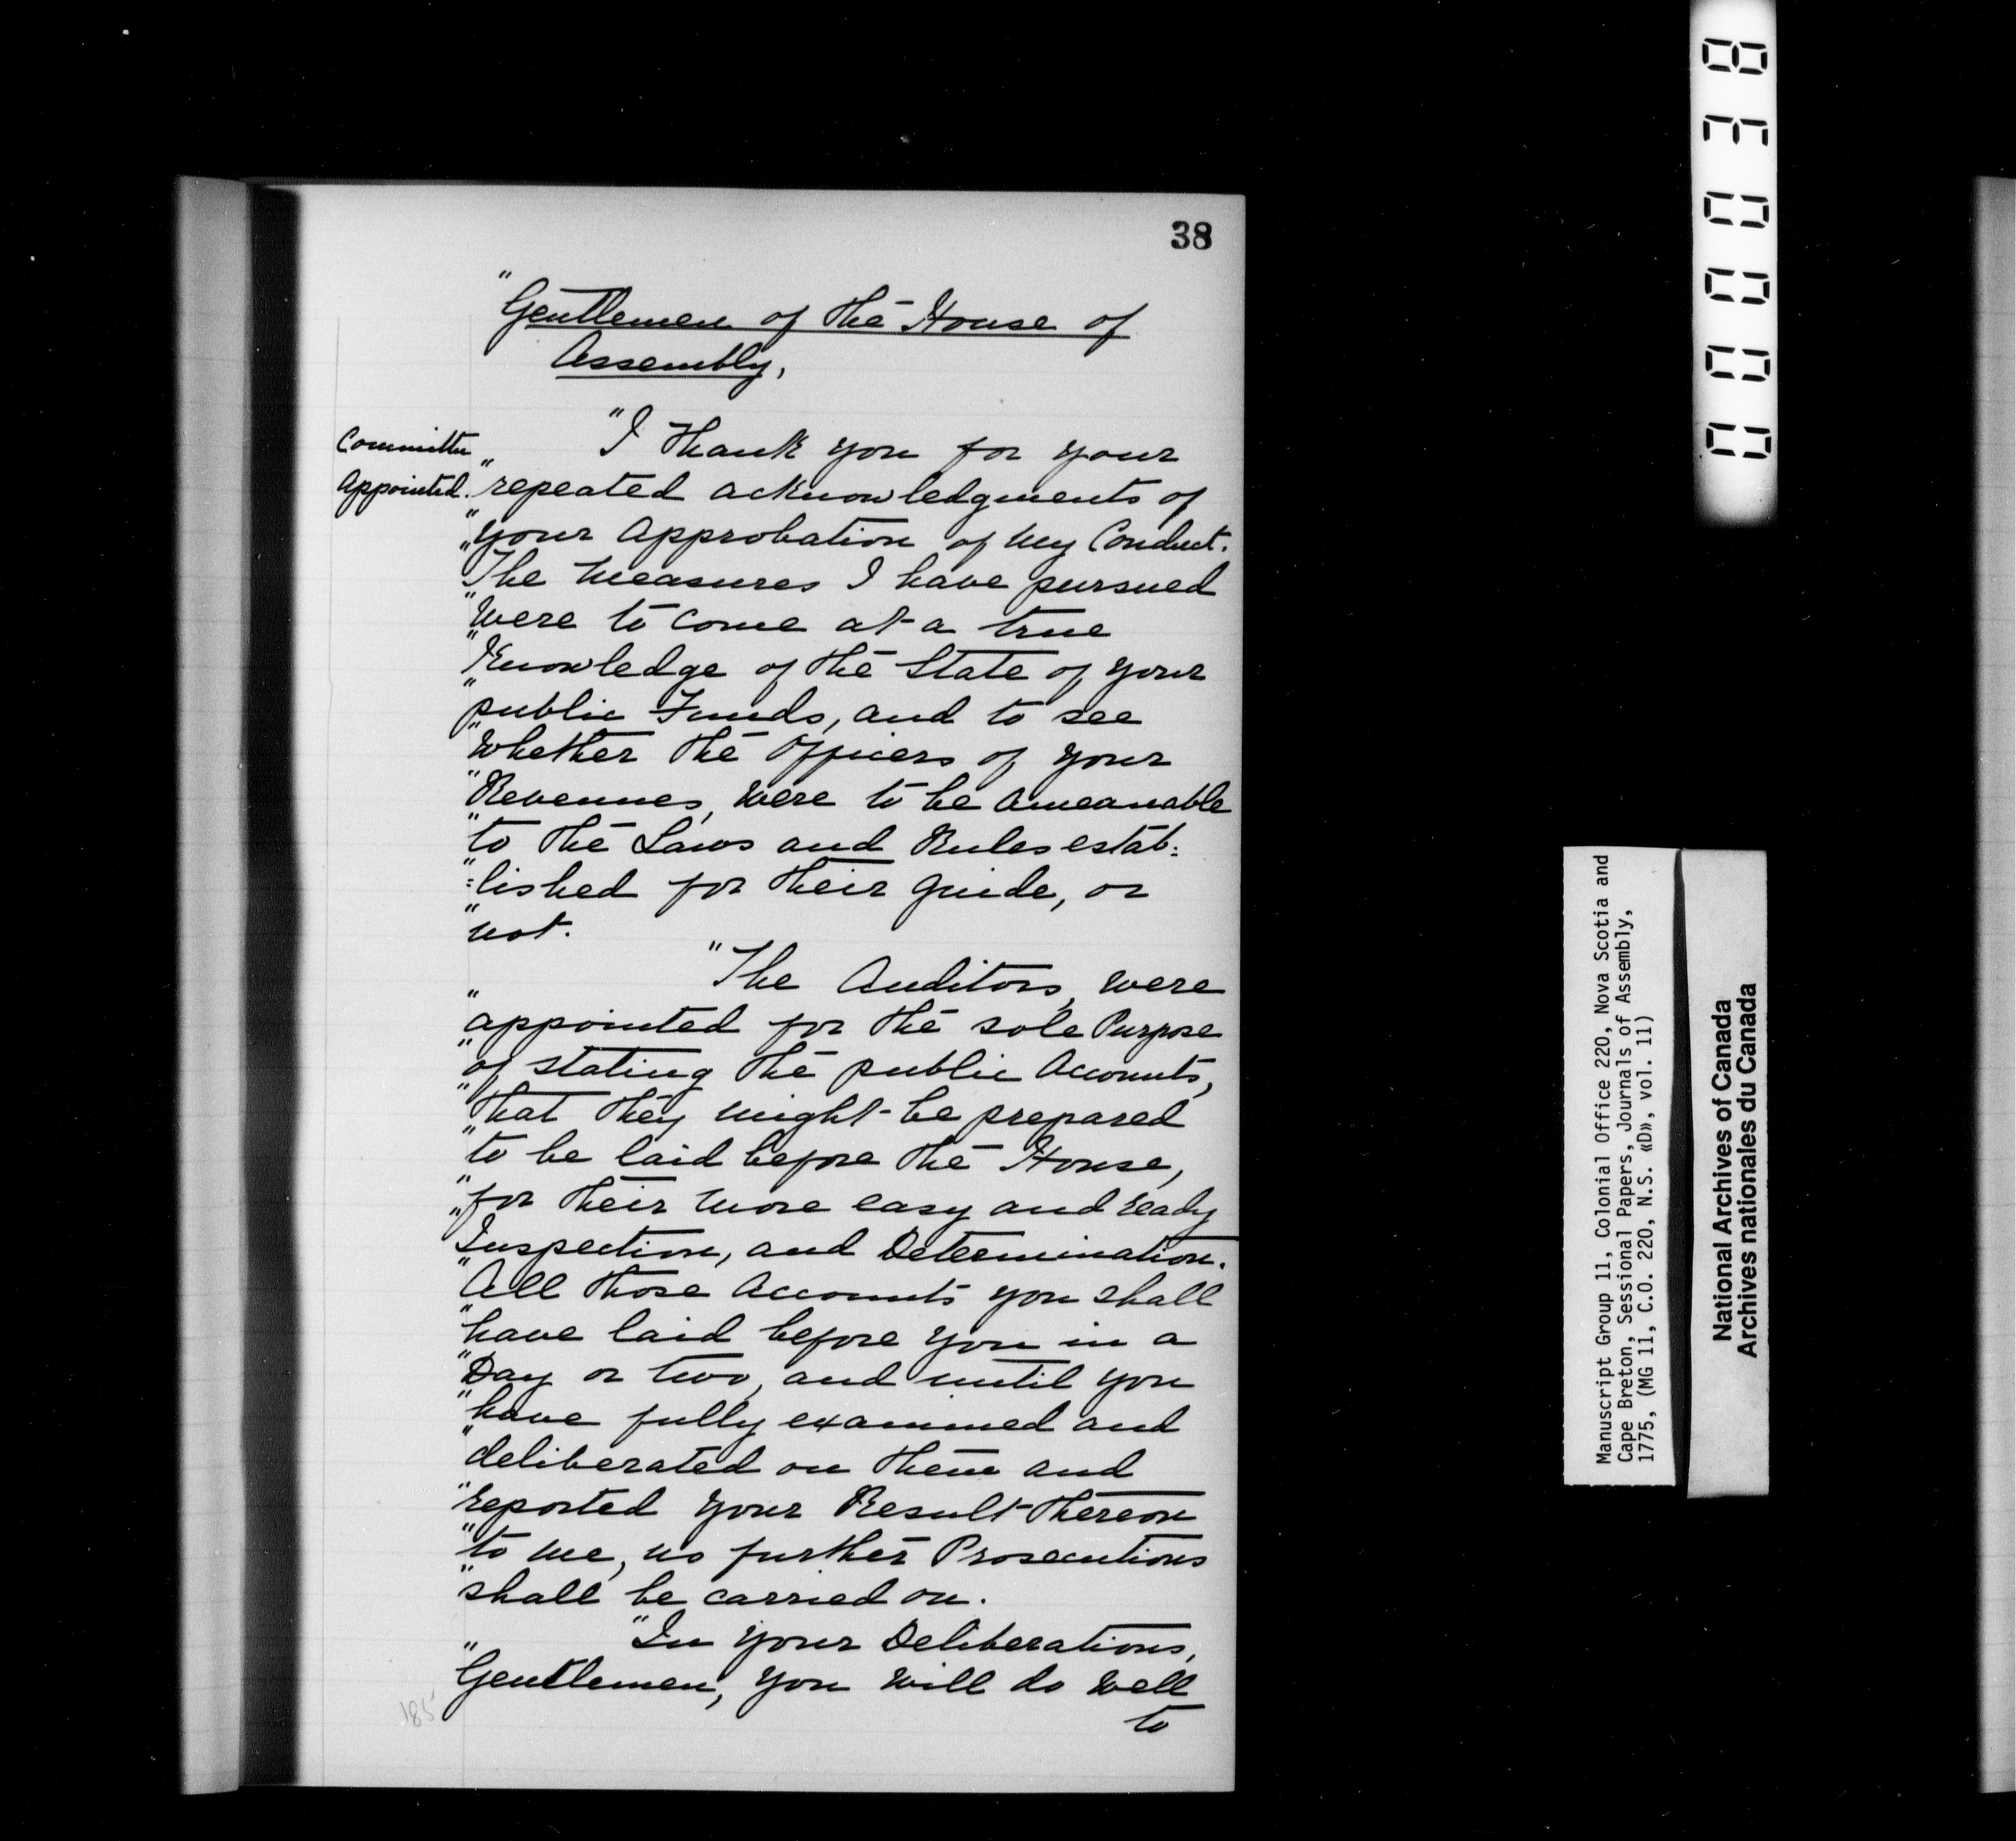 38
"Gentlemen of the House of
Assembly,
Committee
Appointed.
"I thank you for your
"repeated acknowledgments of
"your Approbation of my Conduct.
"The Measures I have pursued
"were to come at a true
"Knowledge of the State of your
"public Funds, and to see
"whether the Officers of your
"Revenues, were to be ameanable
"to the Laws and Rules estab:
":lished for their guide, or
"not.
"The Auditors, were
"appointed for the sole Purpose
"of stating the public Accounts,
"that they might be prepared
"to be laid before the House,
"for their more easy and ready
"Inspection, and Determination.
"All those Accounts you shall
"have laid before you in a
"Day or two, and until you
"have fully examined and
"deliberated on them and
"reported your Result thereon
"to me, no further Prosecutions
"shall be carried on.
"In your Deliberations,
"Gentlemen, you will do well
to
185
000038
Manuscript Group 11, Colonial Office 220, Nova Scotia and
Cape Breton, Sessional Papers, Journals of Assembly,
1775, (MG 11, C.O. 220, N.S. «D», vol. 11)
National Archives of Canada
Archives nationales du Canada